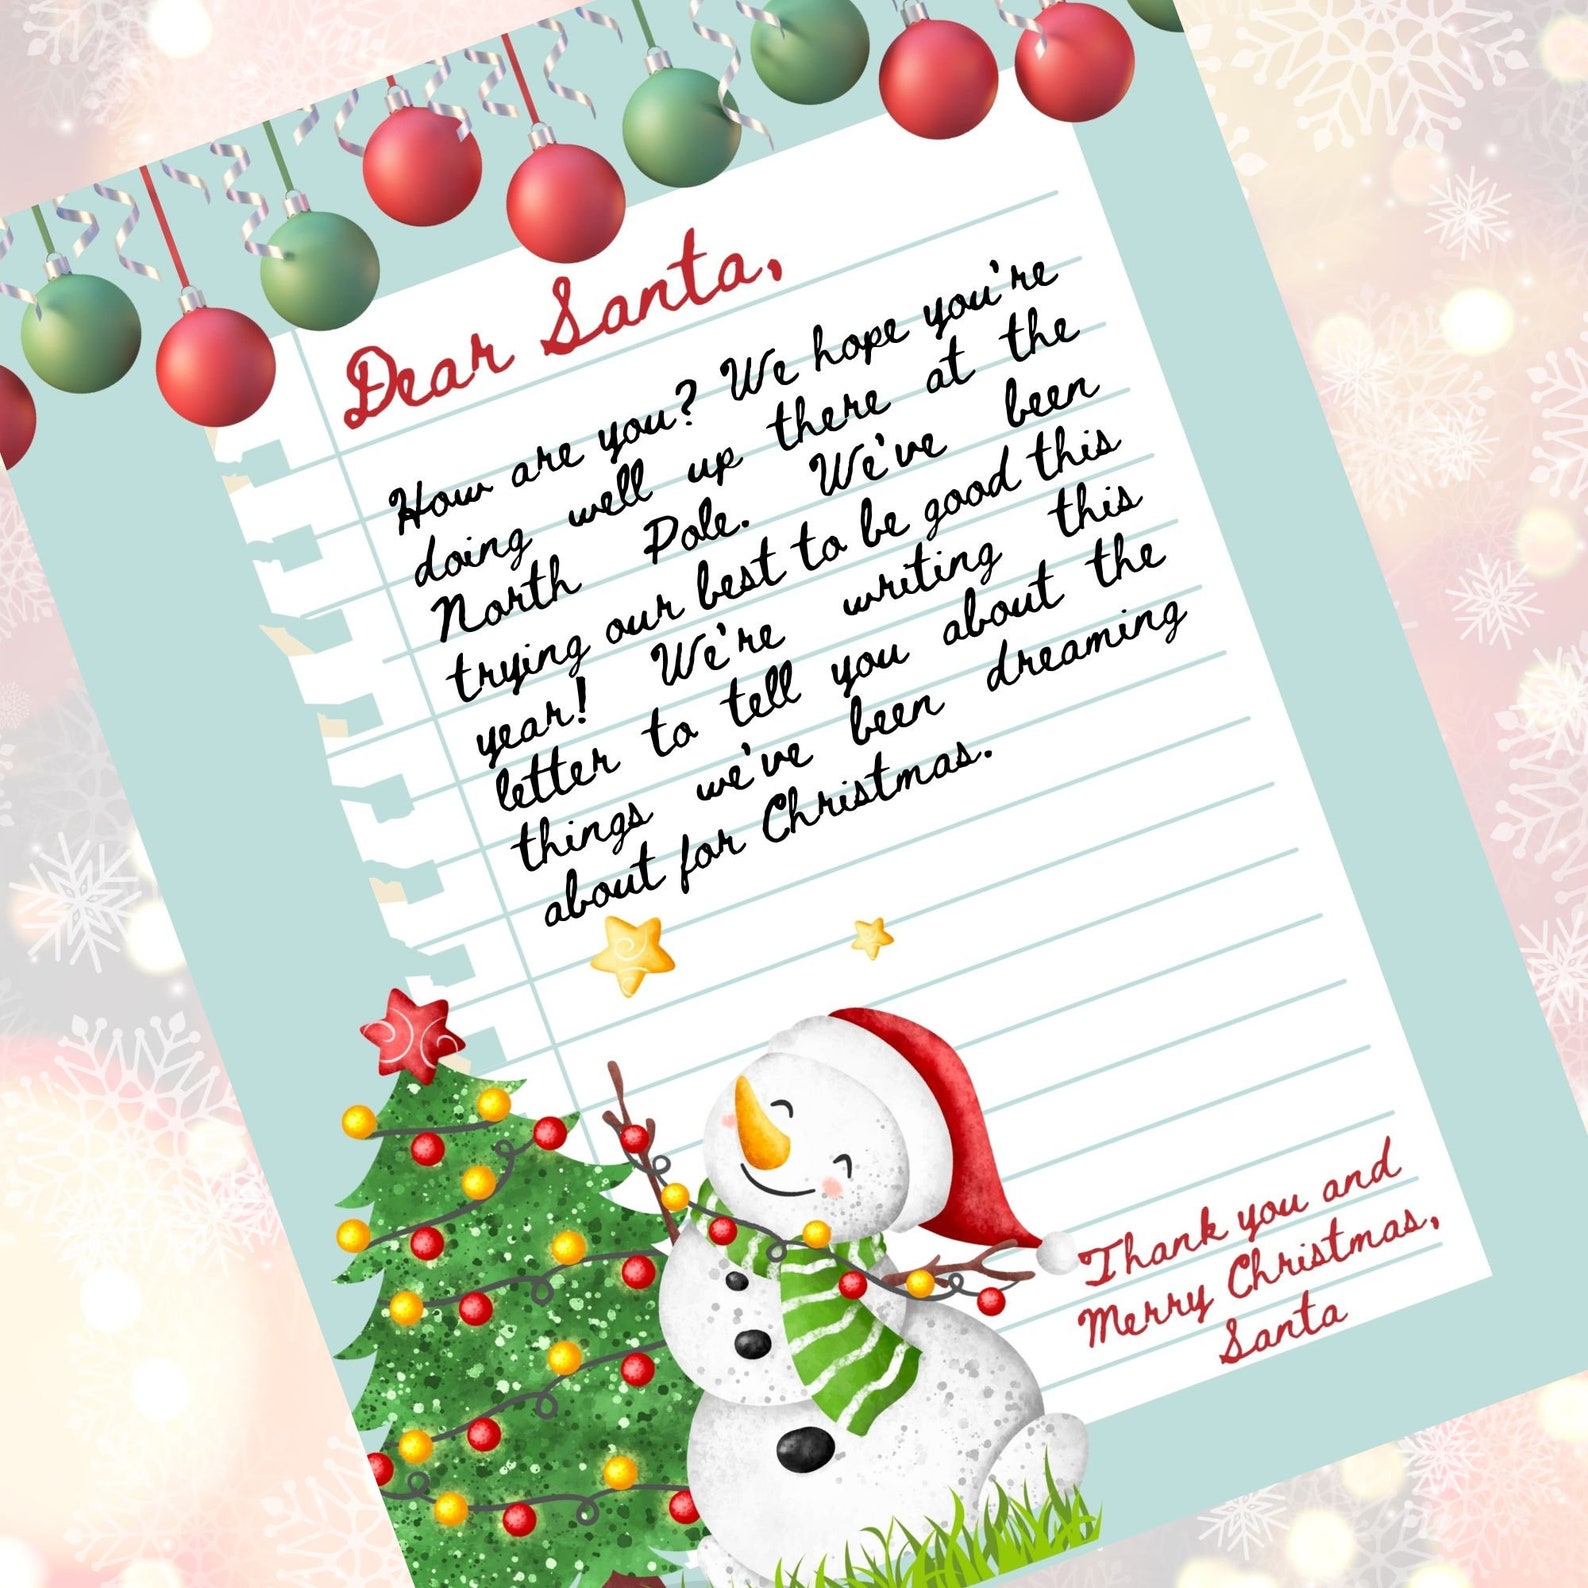 Dear Santa,
How are you? We hope you're
doing well up there at the
North Pole. We've been
trying our best to be good this
year! We're writing this
letter to tell you about the
things we've been dreaming
about for Christmas.
Thank you and
Merry Christmas,
Santa